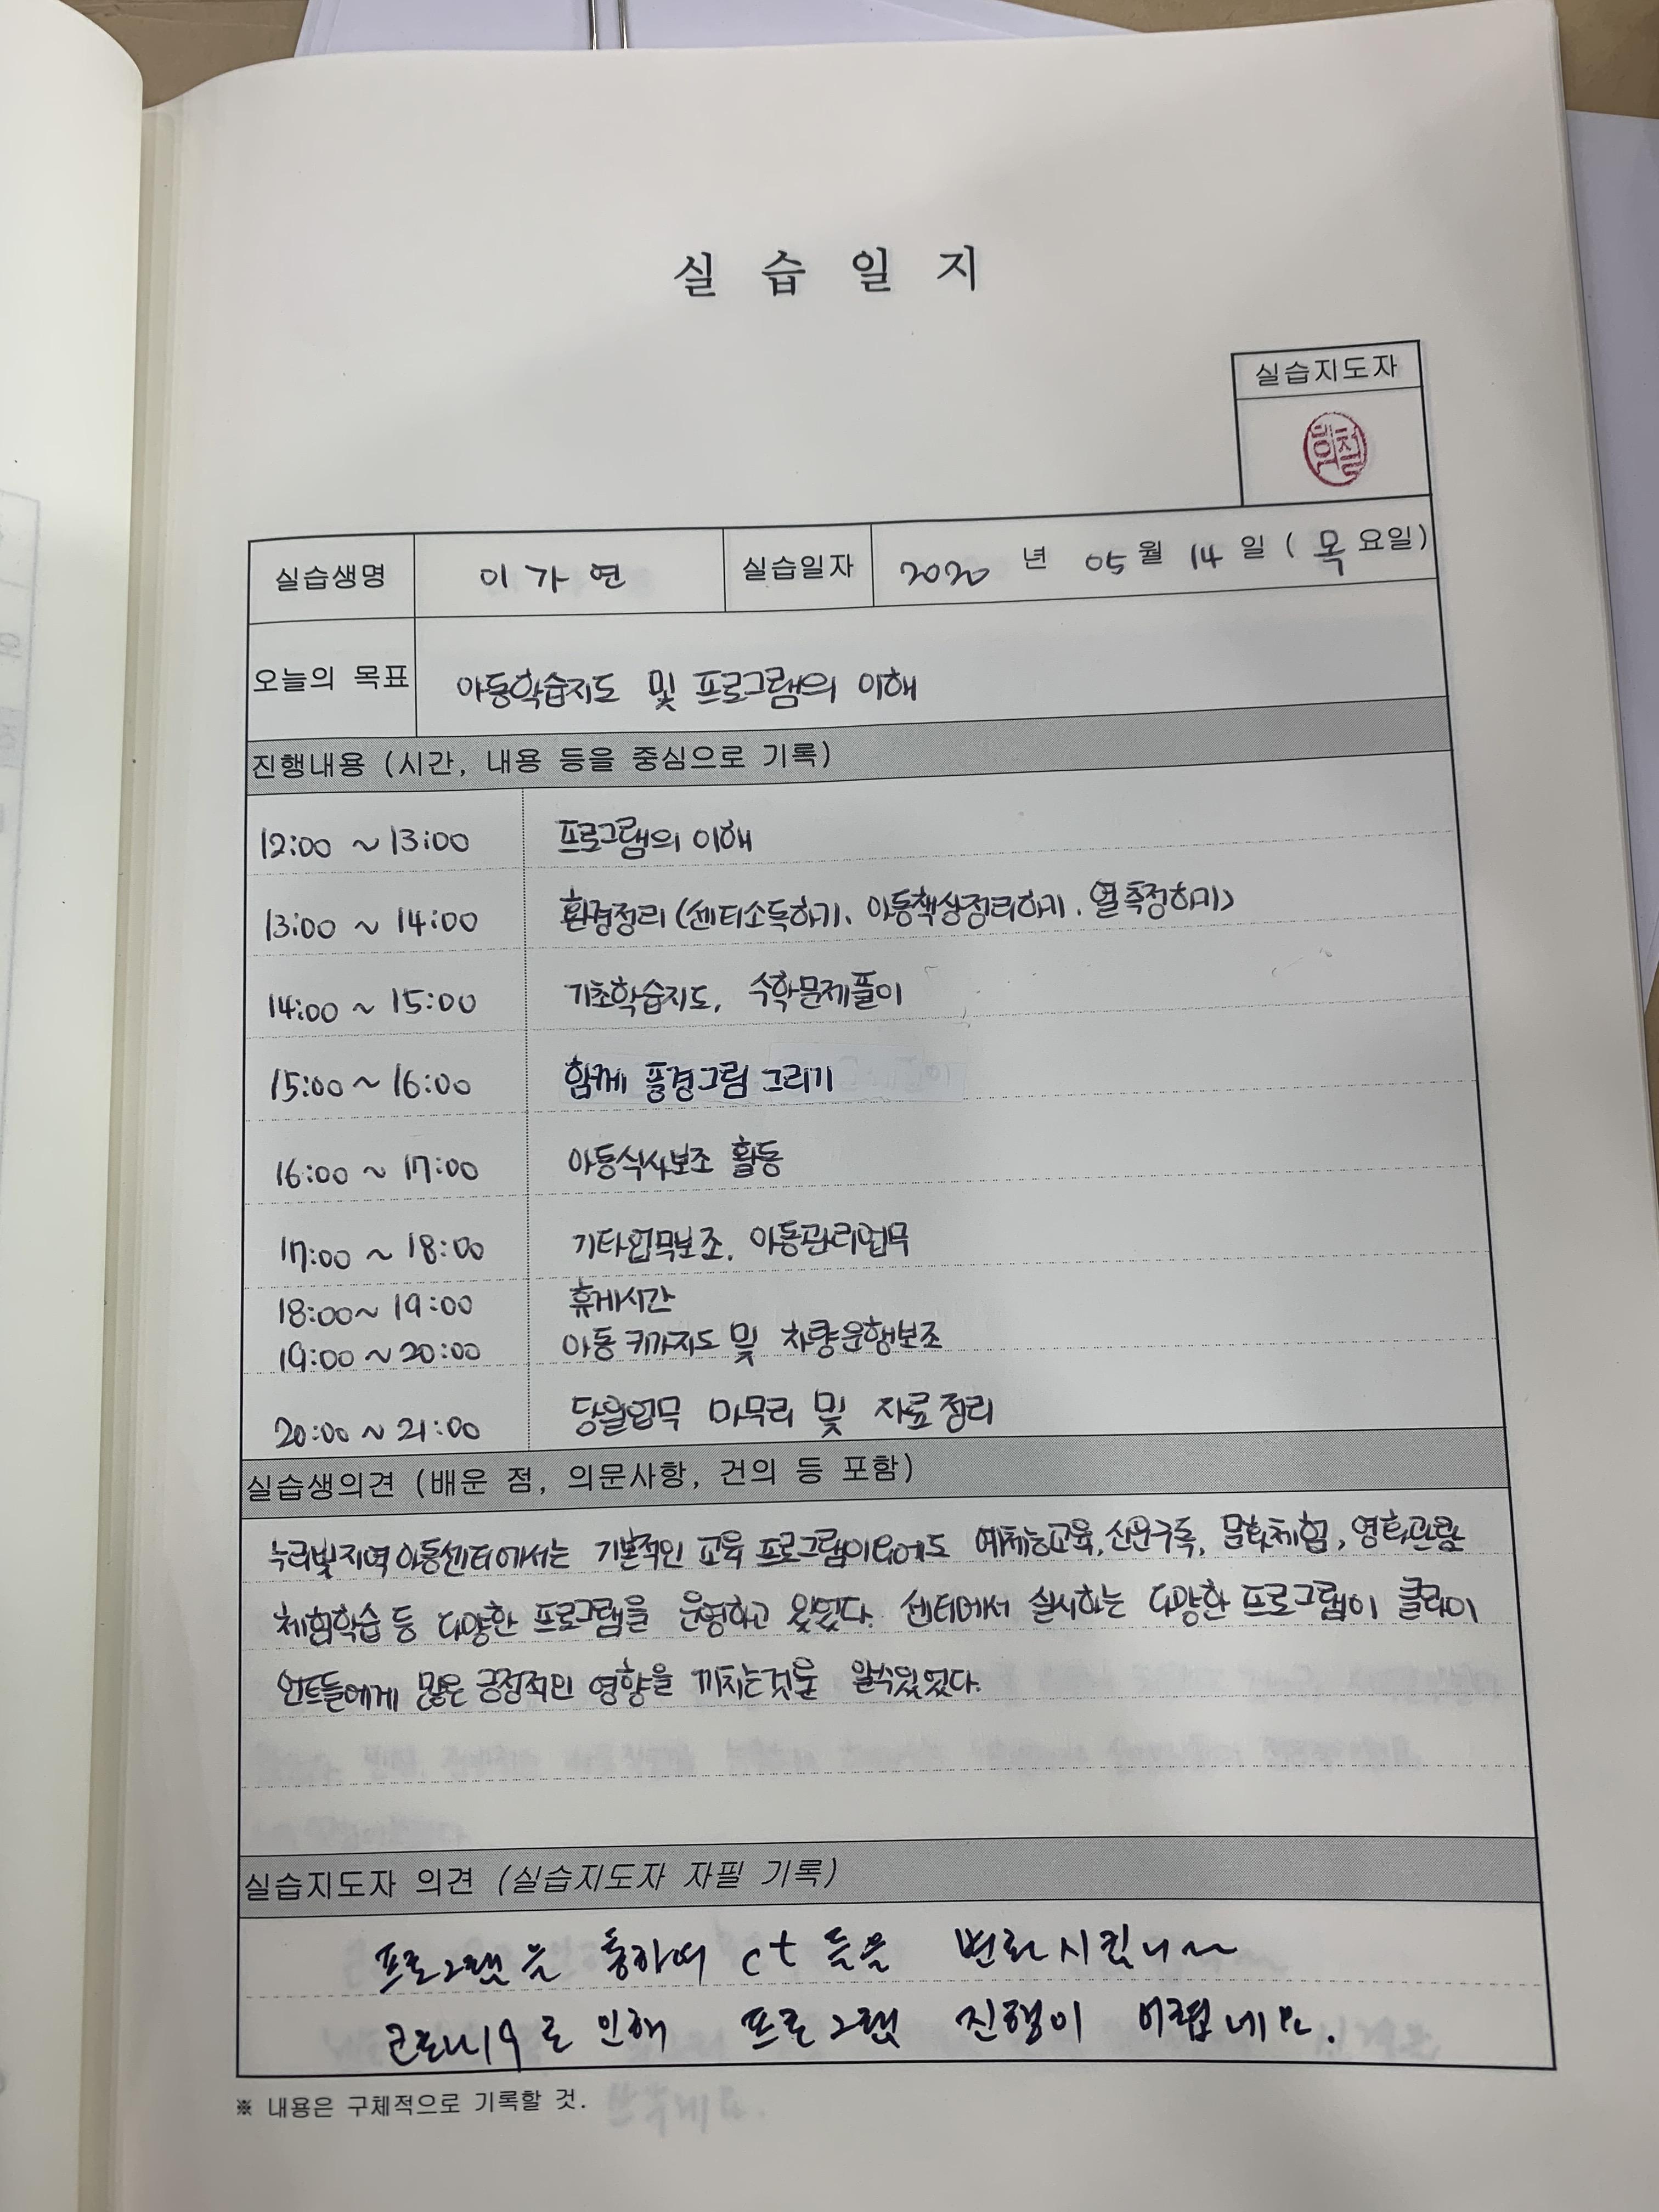 실 습 일 지
실습지도자
실습생명 이가연 실습일자 2020 년 05 월 14 일 ( 목 요일)
오늘의 목표 아동학습지도 및 프로그램의 이해
진행내용 (시간, 내용 등을 중심으로 기록)
12:00 ~ 13:00 프로그램의 이해
13:00 ~ 14:00 환경정리 (센터소독하기, 아동책상정리하기, 열측정하기)
14:00 ~ 15:00 기초학습지도, 수학문제풀이
15:00 ~ 16:00 함께 풍경그림 그리기
16:00 ~ 17:00 아동식사보조 활동
17:00 ~ 18:00 기타업무보조, 아동관리업무
18:00 ~ 19:00 휴게시간
19:00 ~ 20:00 아동 귀가지도 및 차량운행보조
20:00 ~ 21:00 당일업무 마무리 및 자료정리
실습생의견 (배운 점, 의문사항, 건의 등 포함)
누리빛지역아동센터에서는 기본적인 교육 프로그램이외에도 예체능교육, 신문구독, 문화체험, 영화관람
체험학습 등 다양한 프로그램을 운영하고 있었다. 센터에서 실시하는 다양한 프로그램이 클라이
언트들에게 많은 긍정적인 영향을 끼치는것을 알수있었다.
실습지도자 의견 (실습지도자 자필 기록)
프로그램을 통하여 ct 들을 변화시킵니~~
코로나19로 인해 프로그램 진행이 어렵네요.
※ 내용은 구체적으로 기록할 것.